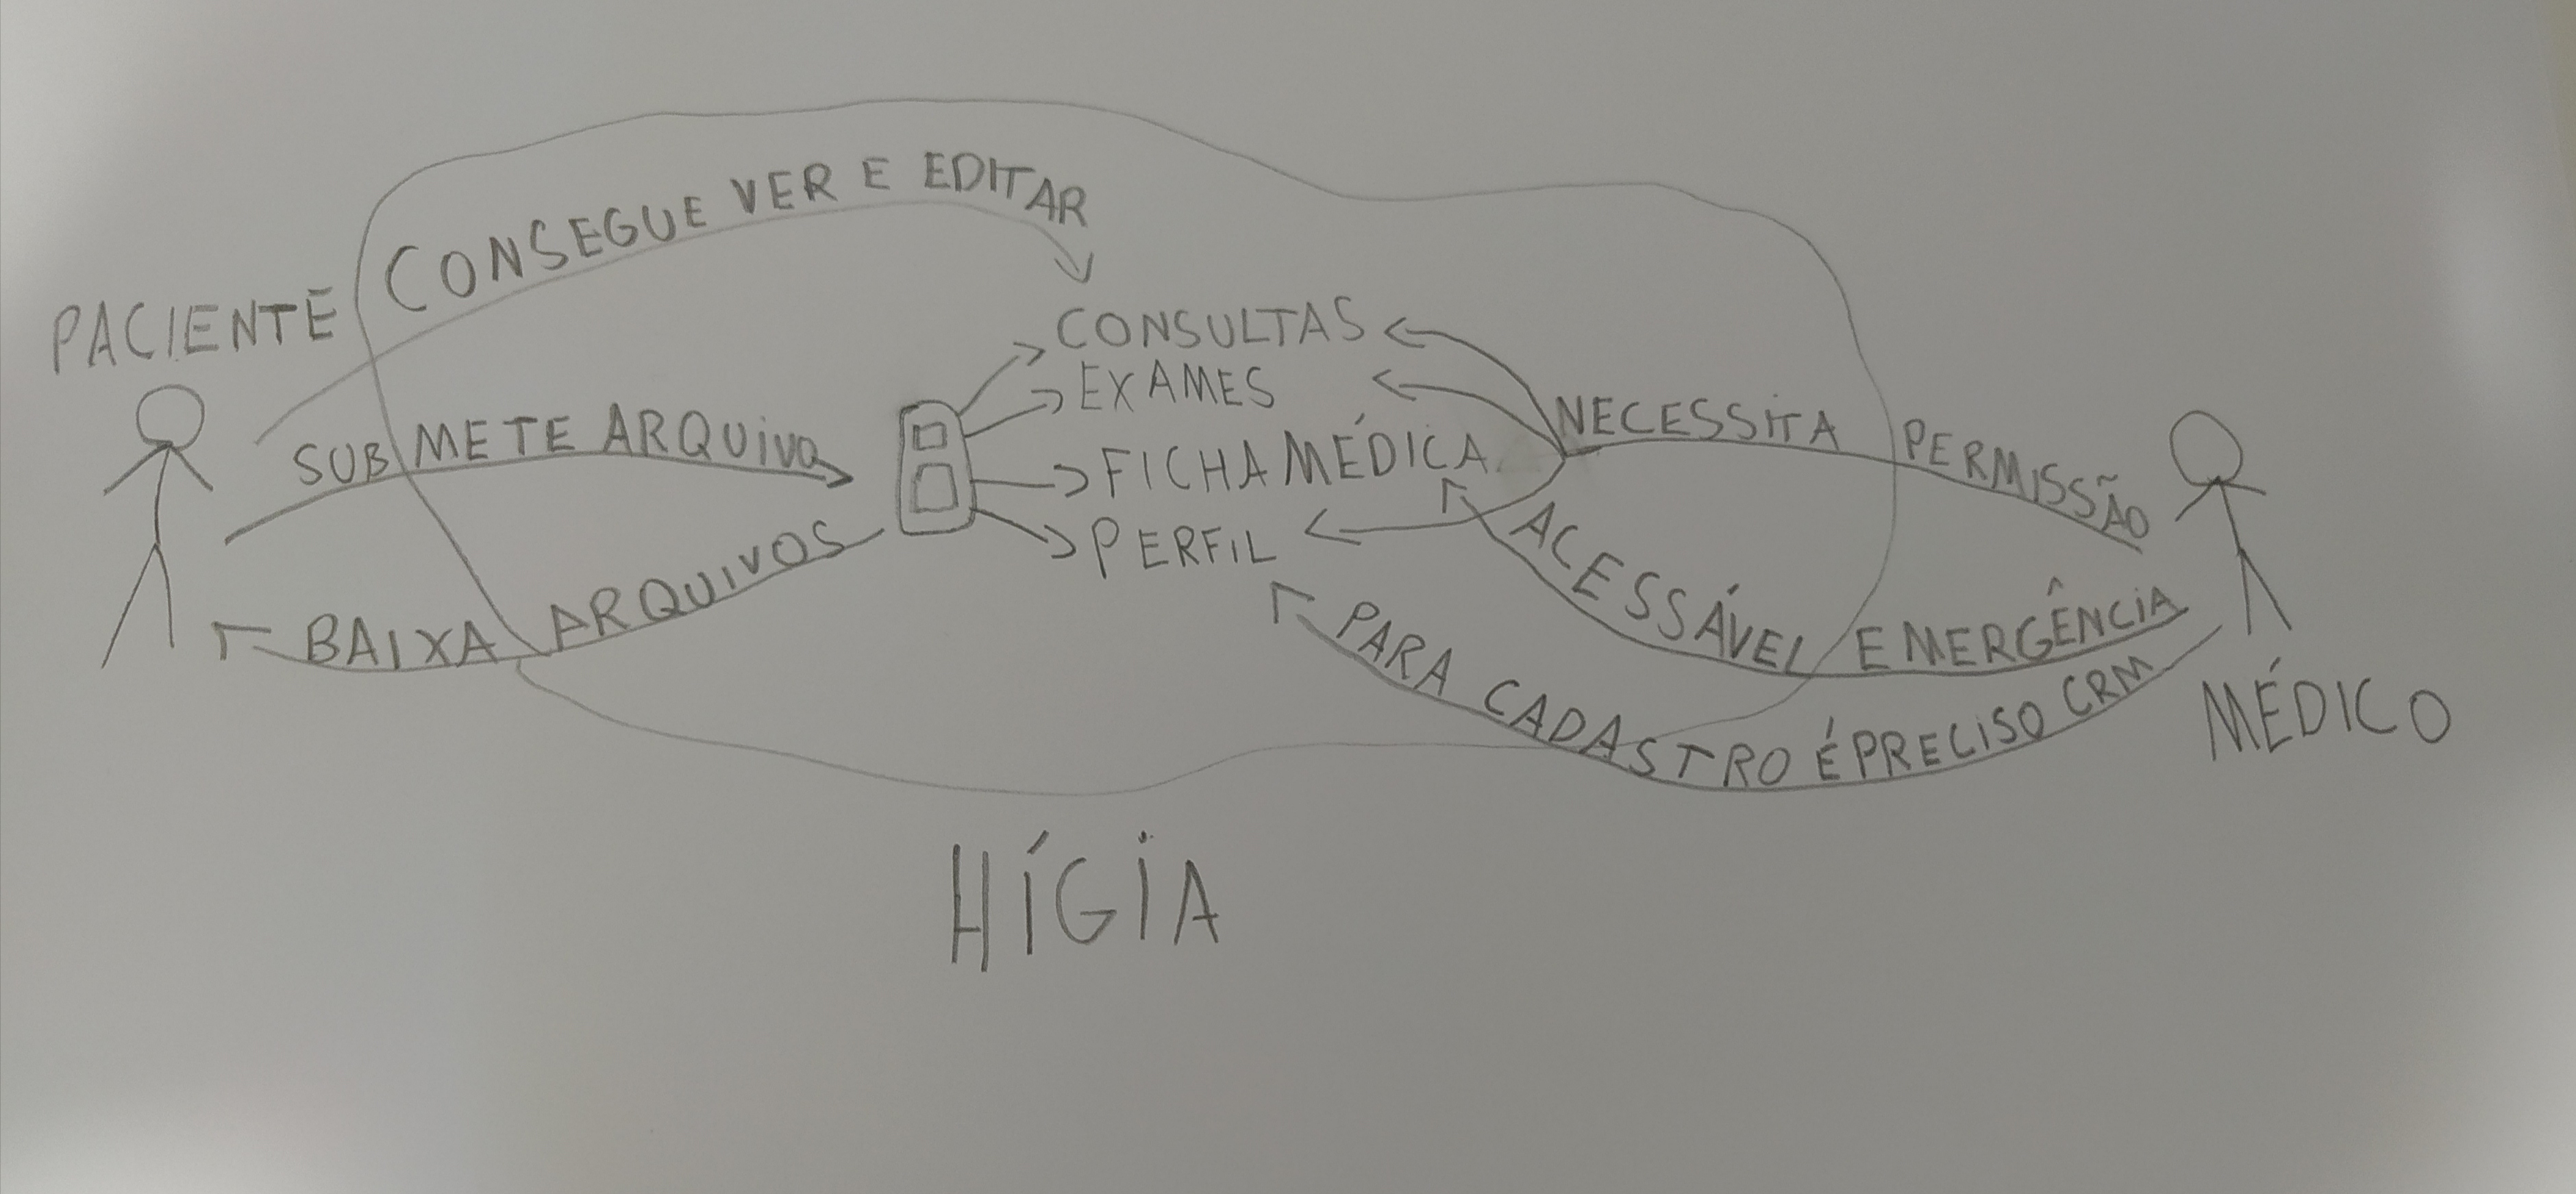 CONSEGUE VER E EDITAR
PACIENTE
SUBMETE ARQUIVO
BAIXA ARQUIVOS
CONSULTAS
EXAMES
FICHA MÉDICA
PERFIL
NECESSITA PERMISSÃO
ACESSÁVEL EMERGÊNCIA
PARA CADASTRO É PRECISO CRM
MÉDICO
HÍGIA